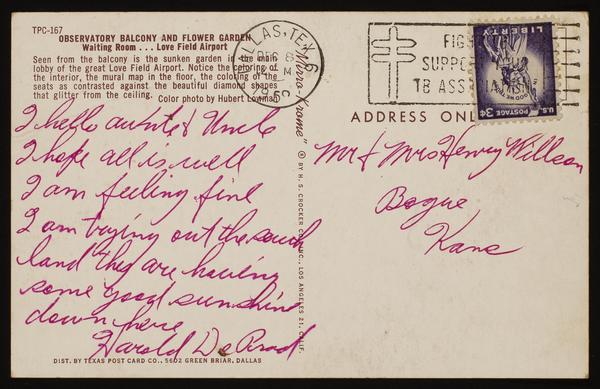 TPC-167
OBSERVATORY BALCONY AND FLOWER GARDEN
Waiting Room . . . Love Field Airport
Seen from the balcony is the sunken garden in the main
lobby of the great Love Field Airport. Notice the coloring of
the interior, the mural map in the floor, the coloring of the
seats as contrasted against the beautiful diamond shapes
that glitter from the ceiling. Color photo by Hubert
DALLAS, TEX. 6
DEC 8
FIGHT
SUPPORT
TB ASS
LIBERTY
U.S. POSTAGE 3¢
"Mirro-Krome"
© BY H. S. CROCKER CO., INC., LOS ANGELES 21, CALIF.
ADDRESS ONLY
Hello aunt & Uncle
I hope all is well
I am feeling fine
I am trying out the south
land they are having
some good sunshine
down here
Harold
Mr & Mrs Henry Willson
Bogue
Kans
DIST. BY TEXAS POST CARD CO., 5602 GREEN BRIAR, DALLAS